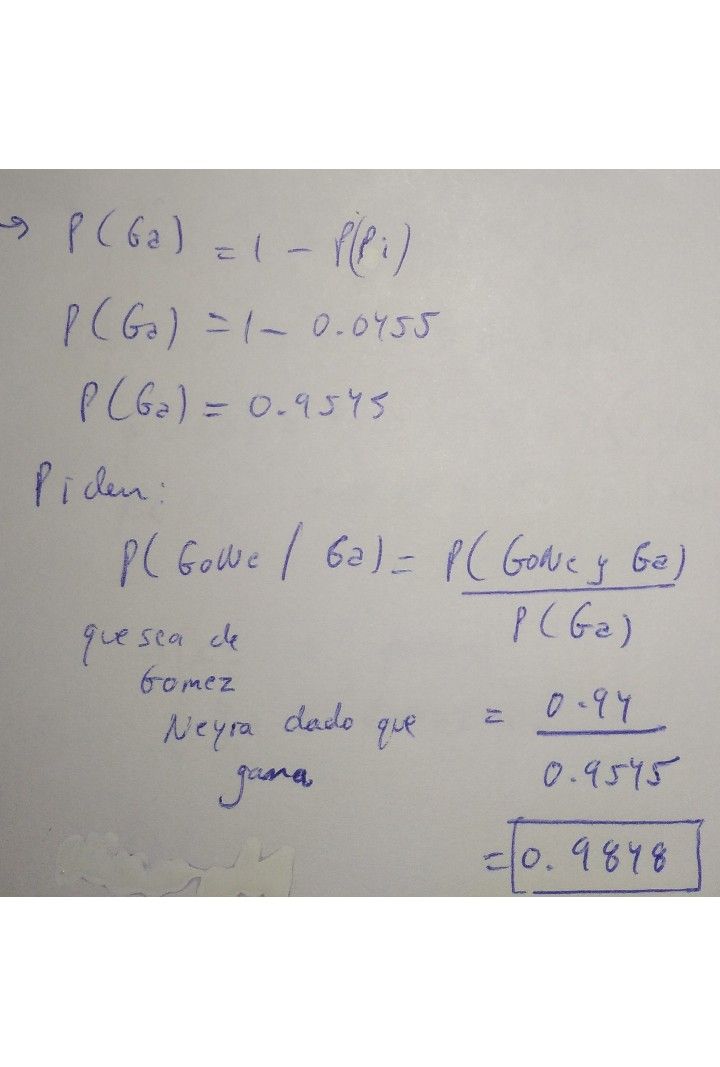 → P(Ga) = 1 - P(Pi)
P(Ga) = 1 - 0.0455
P(Ga) = 0.9545
Piden:
P( GoNe / Ga) = P( GoNe y Ga)
P(Ga)
que sea de
Gomez
Neyra dado que
gana
= 0.94
0.9545
= 0.9848